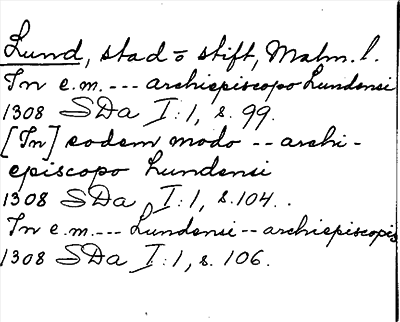 Lund, stad o stift, Malm. l.
In e.m. --- archiepiscopo Lundensi
1308 SDa I:1, s. 99.
[In] eodem modo -- archi-
episcopo Lundensi
1308 SDa I:1, s. 104.
In e.m. --- Lundensi -- archiepiscopis
1308 SDa I:1, s. 106.